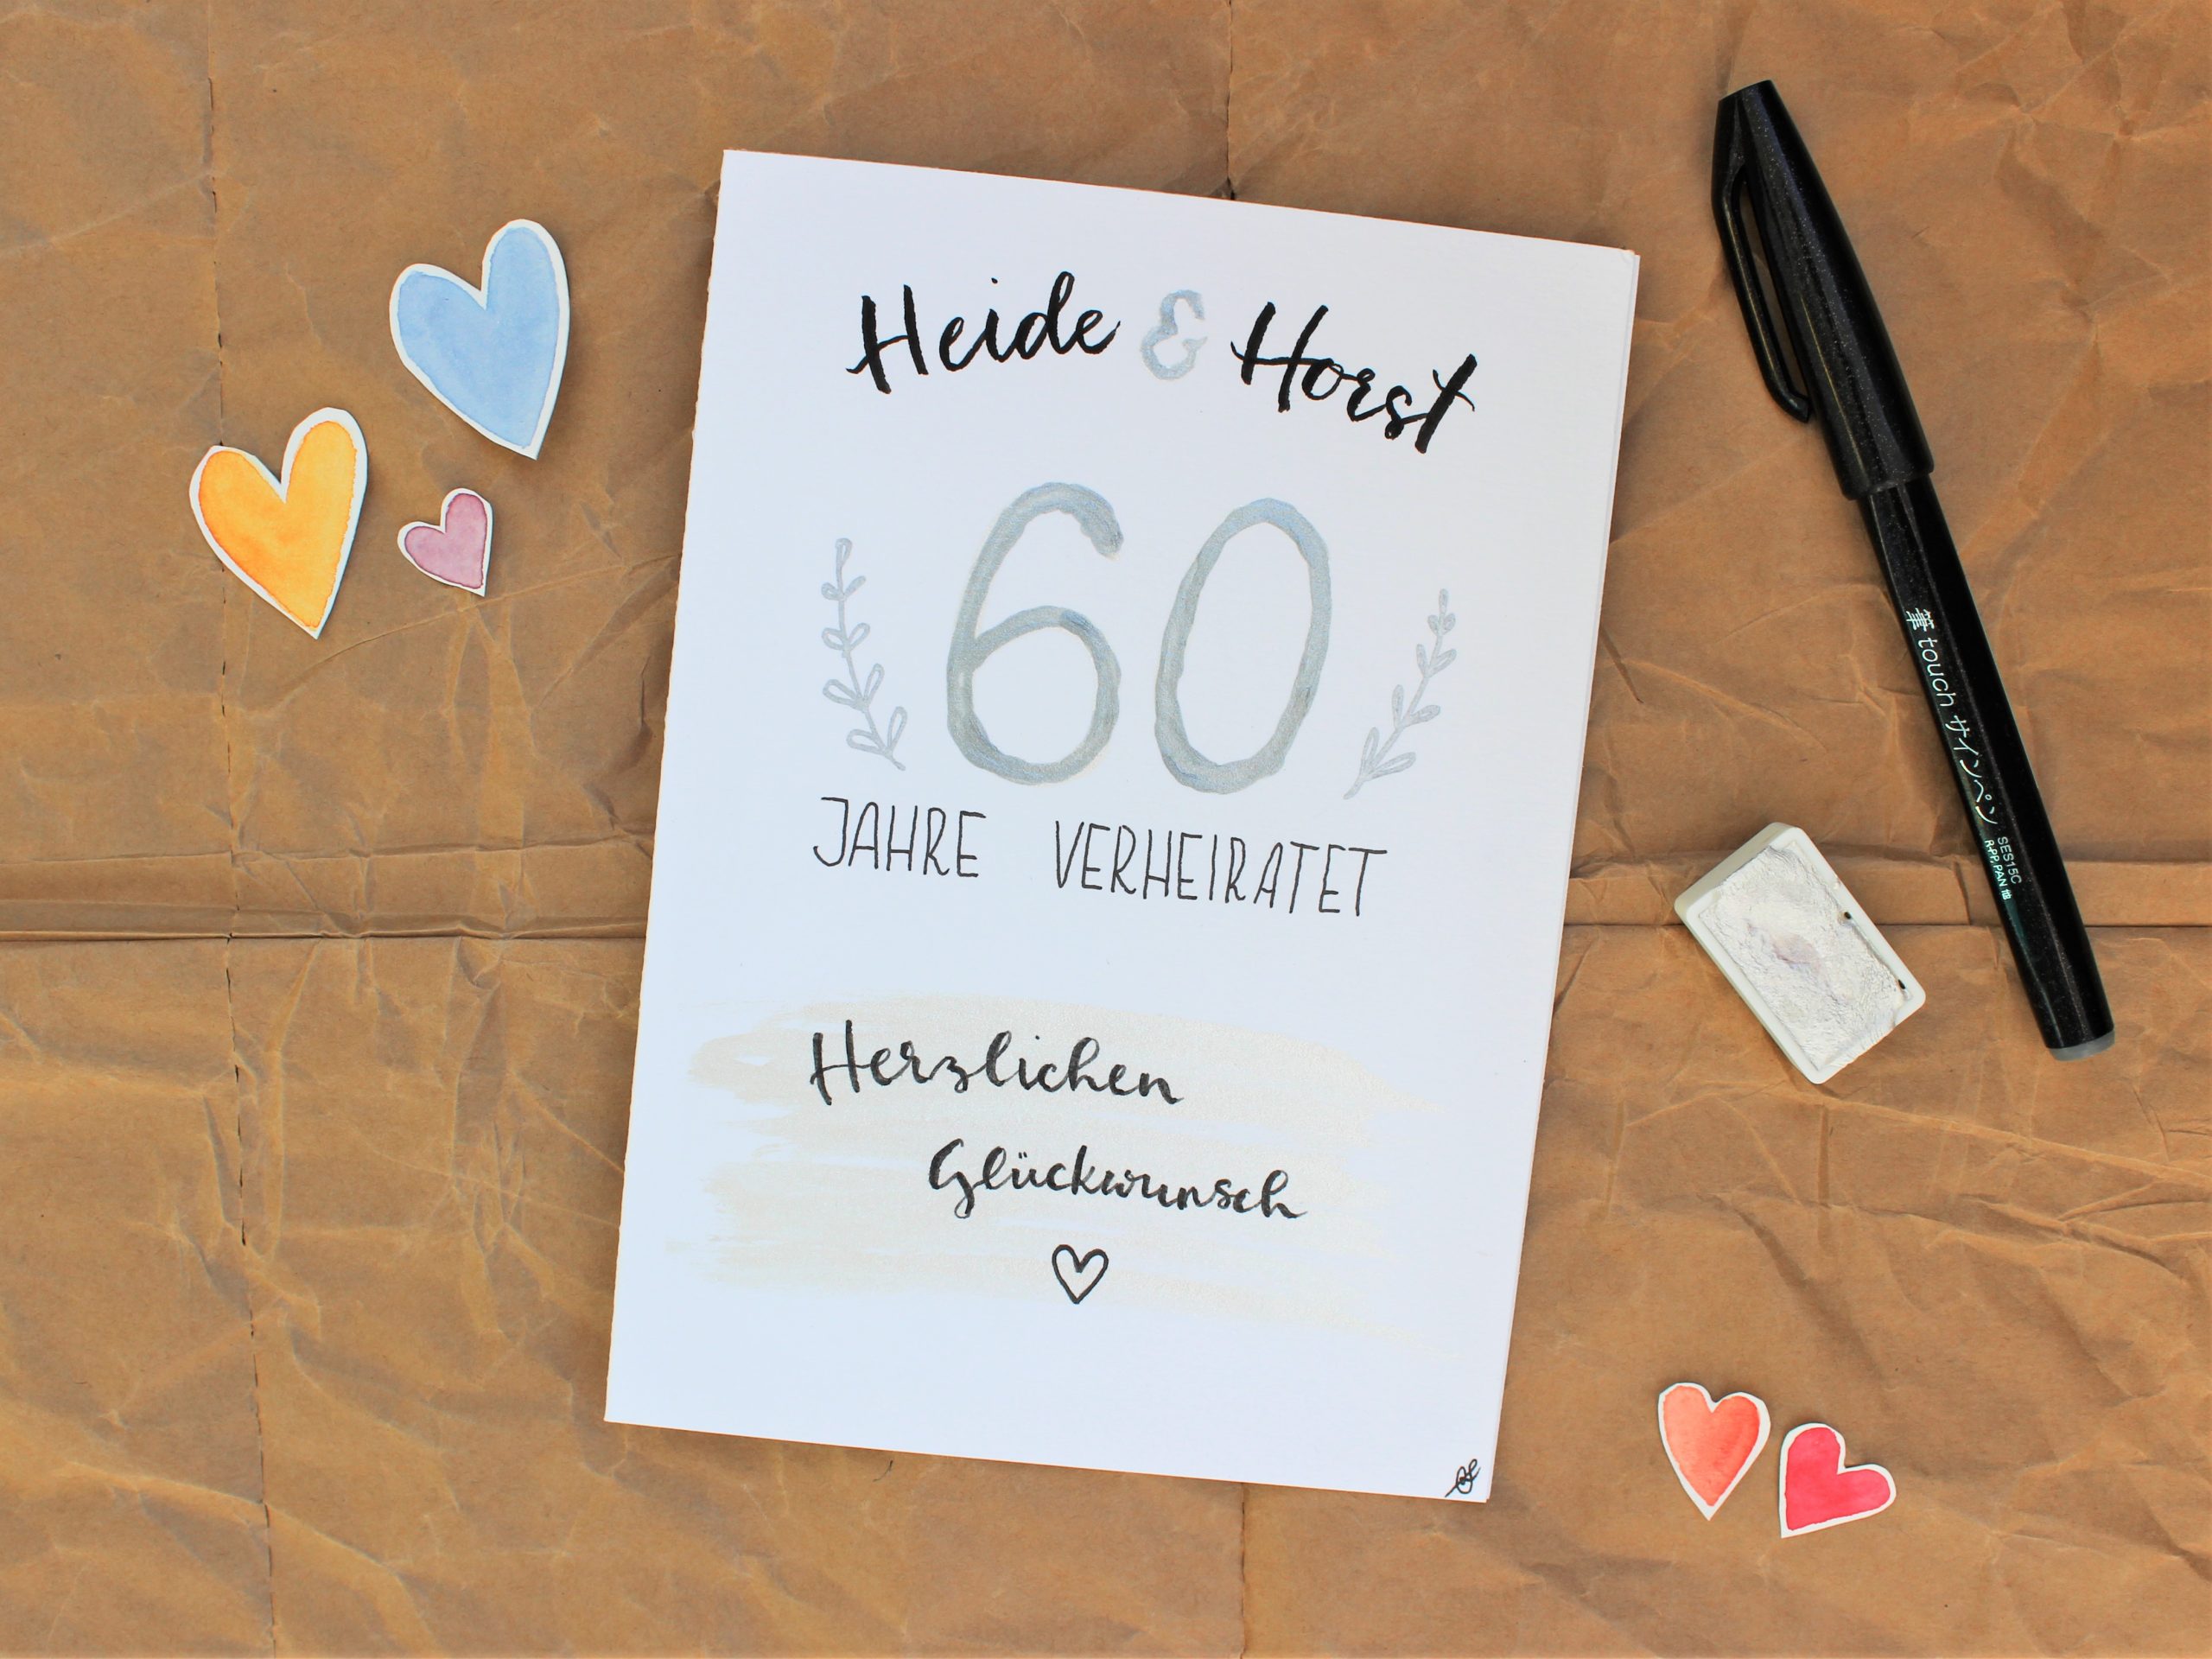 Heide & Horst
60
JAHRE VERHEIRATET
Herzlichen
Glückwunsch
筆touch サインペン SES15C